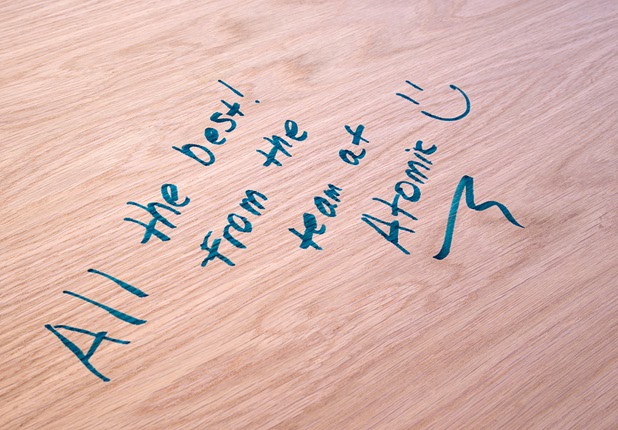 All the best!
from the
team at
Atomic